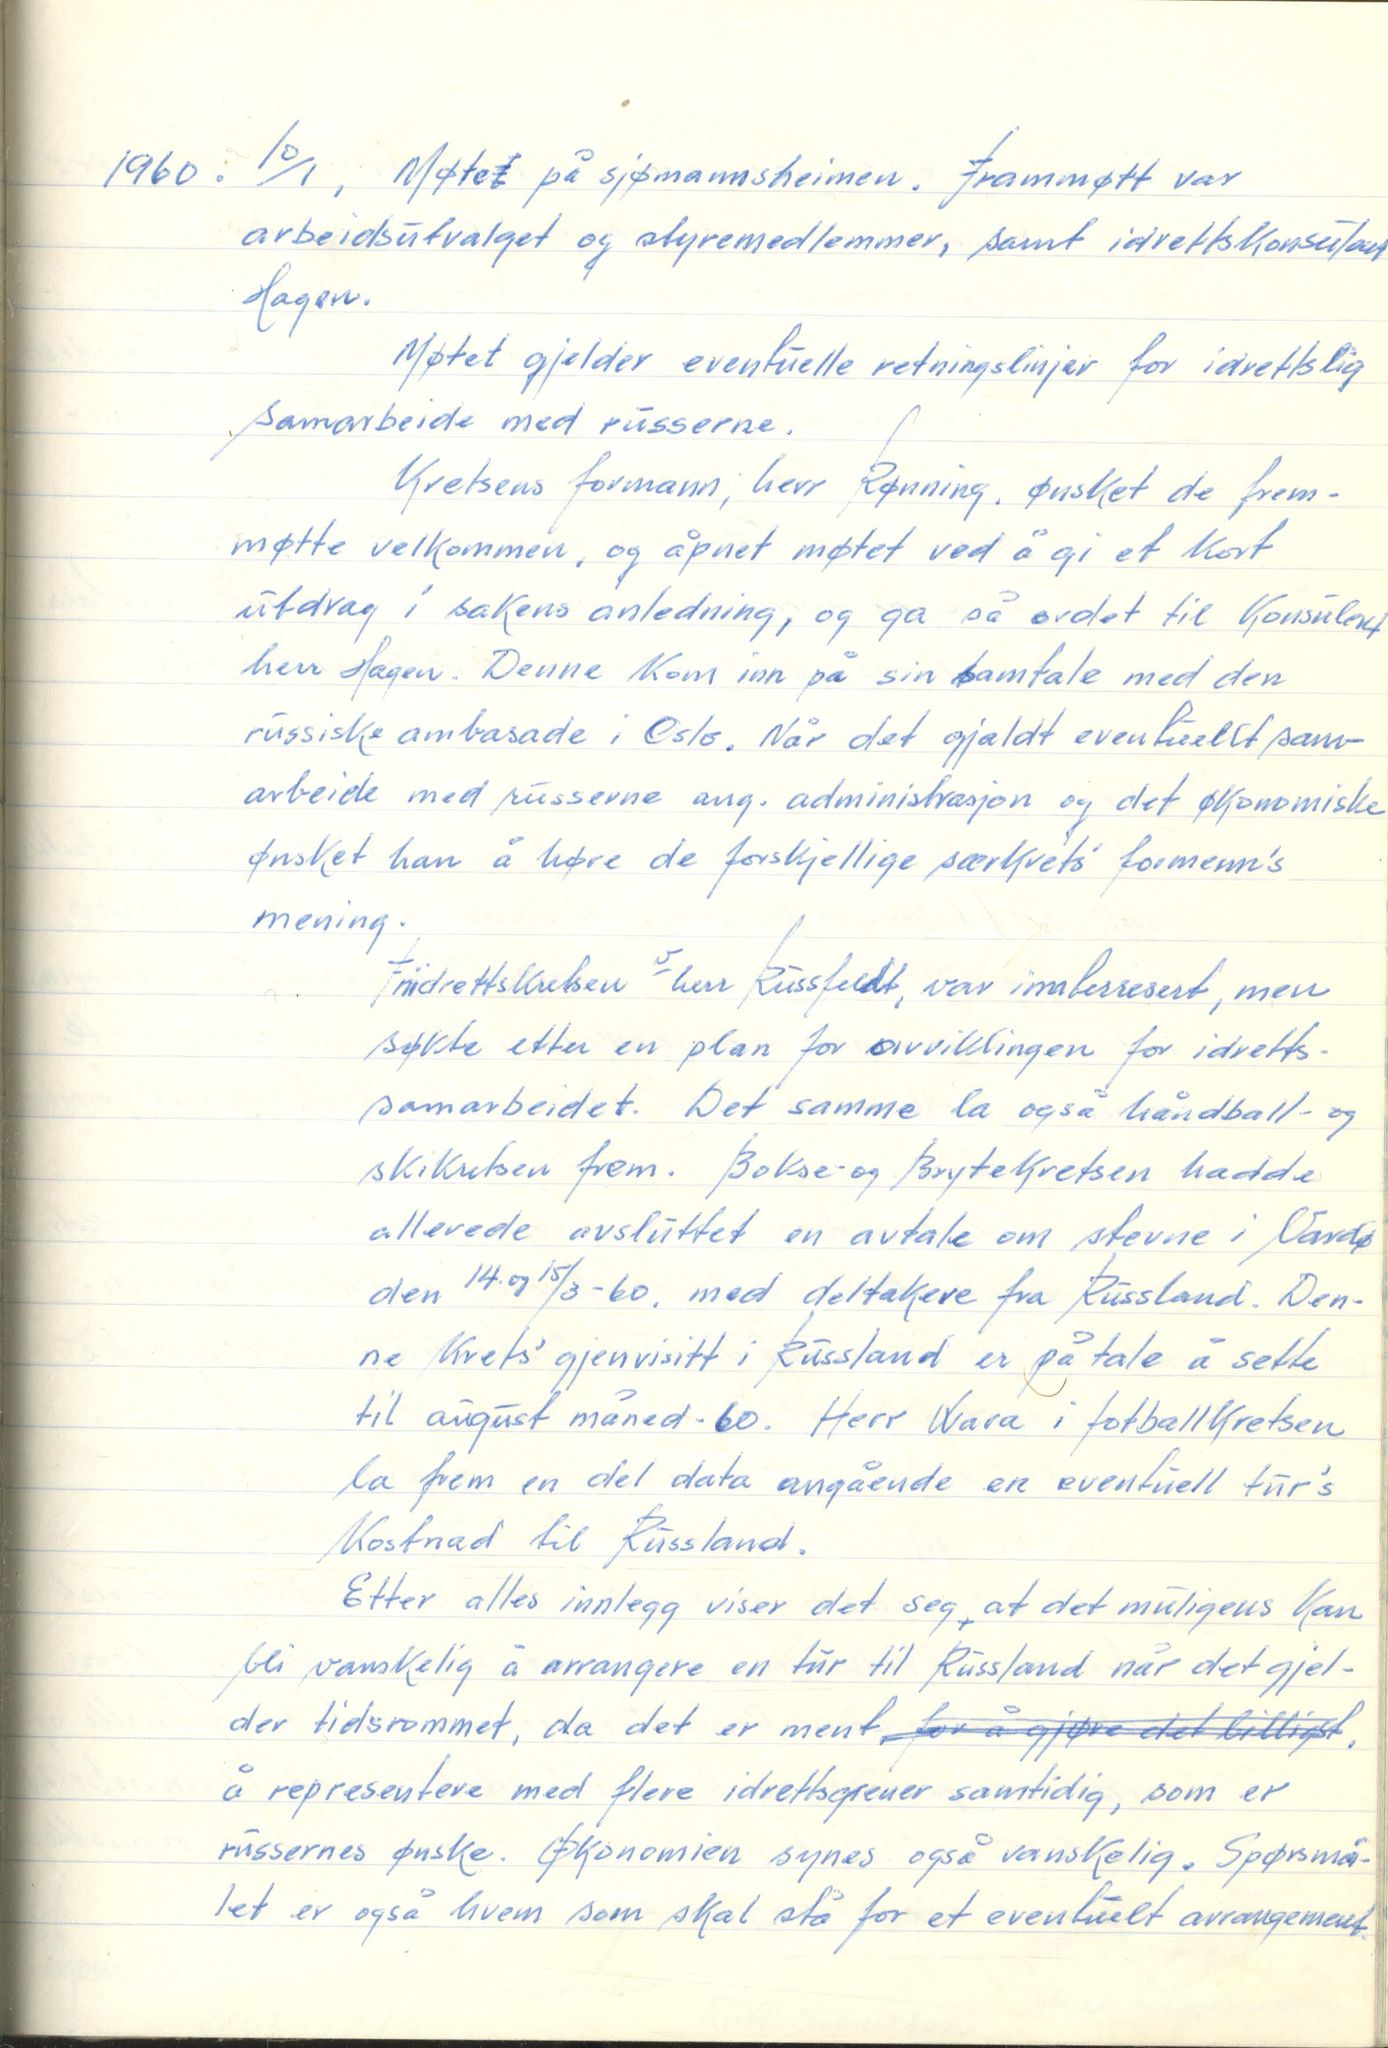 1960. 10/1, Møtet på sjømannsheimen. Frammøtt var
arbeidsutvalget og styremedlemmer, samt idrettskonsulent
Hagen.
Møtet gjelder eventuelle retningslinjer for idrettslig
samarbeide med russerne.
Kretsens formann, herr Rønning. ønsket de frem-
møtte velkommen, og åpnet møtet ved å gi et kort
utdrag i sakens anledning, og ga så ordet til Konsulent
herr Hagen. Denne kom inn på sin samtale med den
russiske ambasade i Oslo. Når det gjaldt eventuellt sam-
arbeide med russerne ang. administrasjon og det økonomiske
ønsket han å høre de forskjellige særkrets' formenn's
mening.
Friidrettskretsen s herr Russfeldt, var innterresert, men
søkte etter en plan for avviklingen for idretts-
samarbeidet. Det samme la også håndball- og
skikretsen frem. Bokse- og Brytekretsen hadde
allerede avsluttet en avtale om stevne i Vardø
den 14. og 15/3-60. med deltakere fra Russland. Den-
ne krets' gjenvisitt i Russland er på tale å sette
til august måned-60. Herr Wara i fotballkretsen
la frem en del data angående en eventuell tur's
kostnad til Russland.
Etter alles innlegg viser det seg, at det muligens kan
bli vanskelig å arrangere en tur til Russland når det gjel-
der tidsrommet, da det er ment for å gjøre det billigst,
å representere med flere idrettsgrener samtidig, som er
russernes ønske. Økonomien synes også vanskelig. Spørsmå-
let er også hvem som skal stå for et eventuelt arrangement.